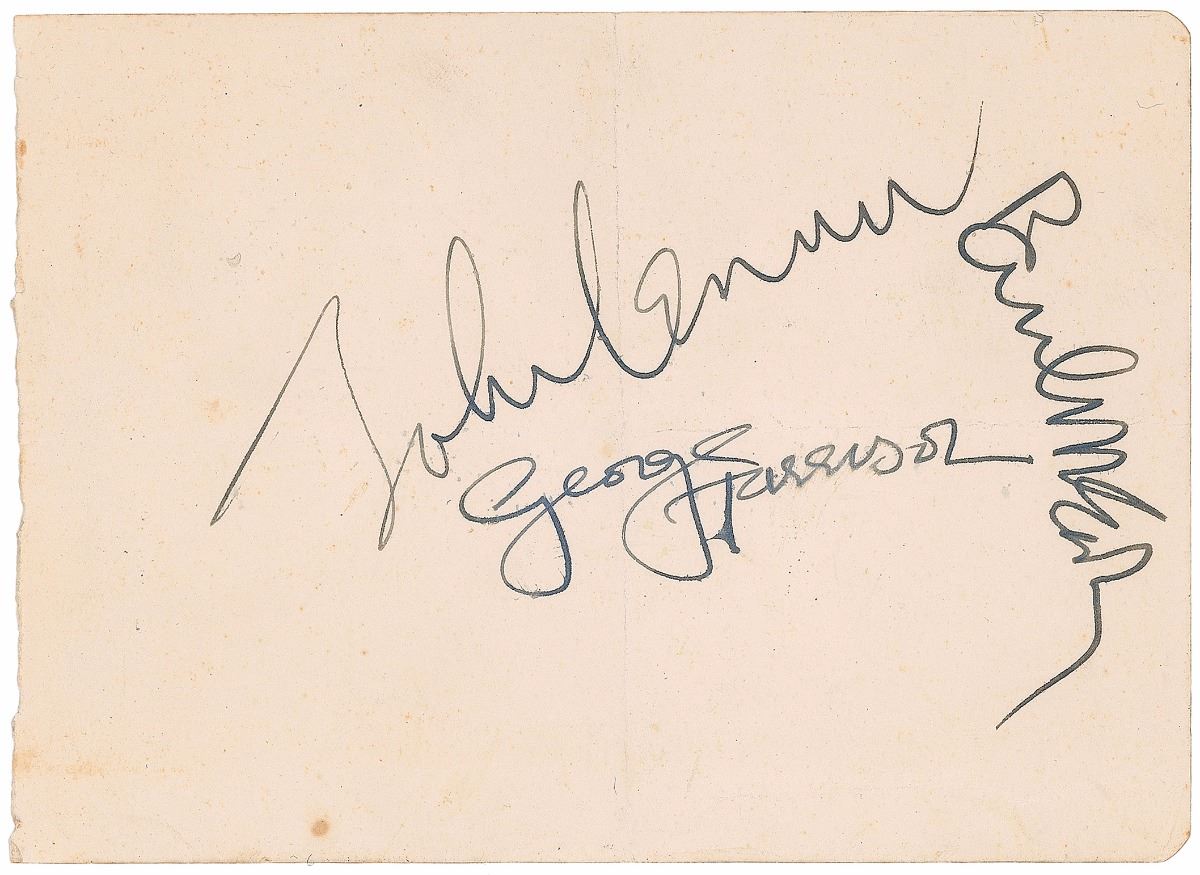 John Lennon
George Harrison
Paul McCartney